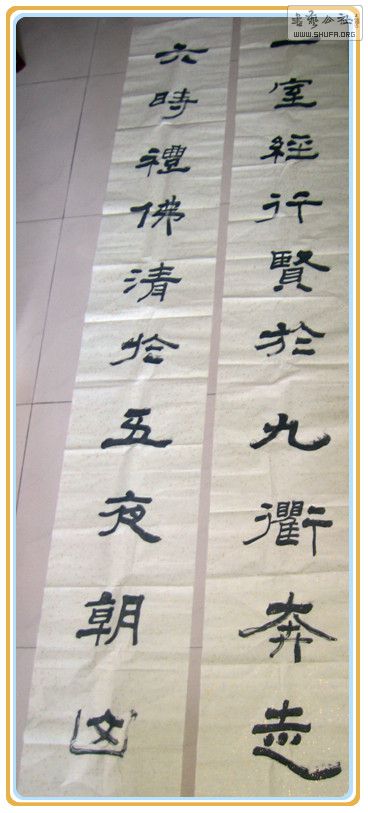 書藝公社
WWW.SHUFA.ORG
一室經行賢於九衢奔走
六時禮佛清於五夜朝